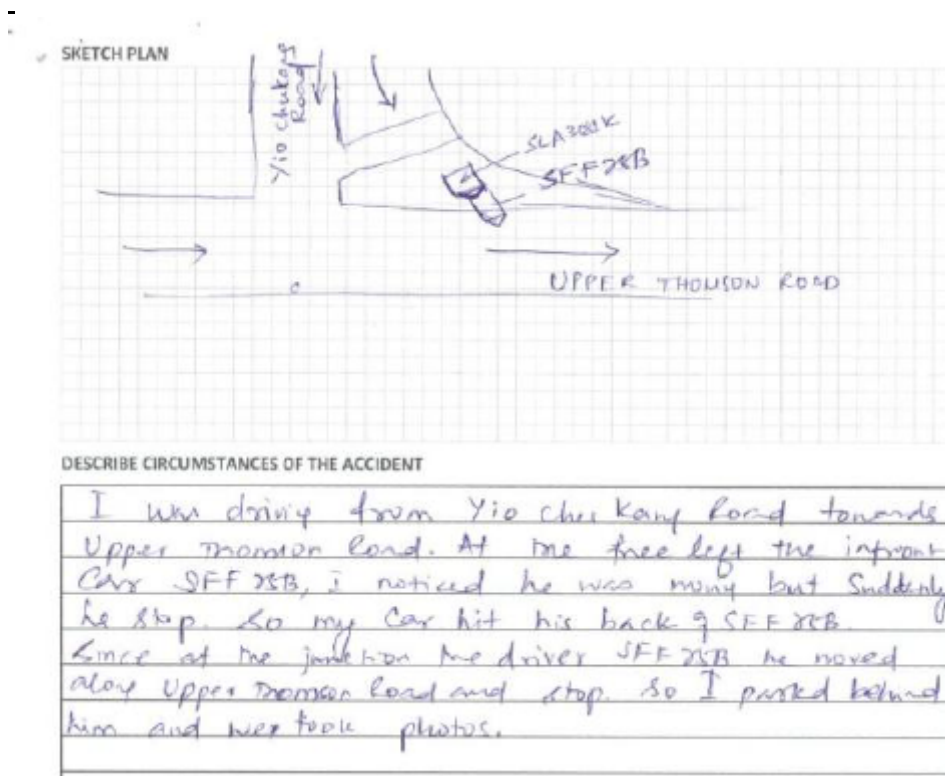 SKETCH PLAN
Yio chukang
Road
SLA3001K
SFF28B
UPPER THOMSON ROAD
DESCRIBE CIRCUMSTANCES OF THE ACCIDENT
I was driving from Yio chu Kang Road towards
Upper Thomson Road. At the free left the infront
Car SFF 28B, i noticed he was moving but Suddenly
he stop. So my Car hit his back of SFF 28B.
Since at the junction the driver SFF 28B he moved
along Upper Thomson Road and stop. So I parked behind
him and took photos.